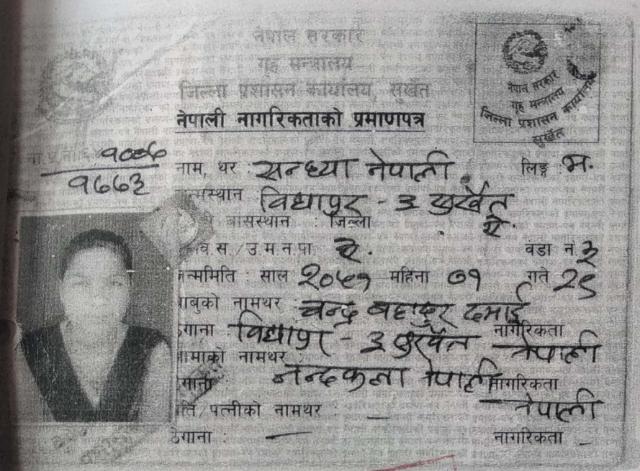 नेपाल सरकार
गृह मन्त्रालय
जिल्ला प्रशासन कार्यालय, सुर्खेत
नेपाली नागरिकताको प्रमाणपत्र
नेपाल सरकार
गृह मन्त्रालय
जिल्ला प्रशासन कार्यालय
सुर्खेत
ना.प्र.नं.
नाम, थर : सन्ध्या नेपाली लिङ्ग म.
स्थान विद्यापुर - ३ सुर्खेत
बासस्थान : जिल्ला ऐ.
वि.स./उ.म.न.पा ऐ. वडा नं ३
जन्ममिति : साल २०५१ महिना ०१ गते २९
बाबुको नामथर : चन्द्र बहादुर दमाई
ठेगाना विद्यापुर - ३ सुर्खेत नागरिकता नेपाली
आमाको नामथर : नन्दकला नेपाली
ठेगाना नागरिकता नेपाली
पति/पत्नीको नामथर : –
ठेगाना : – नागरिकता –